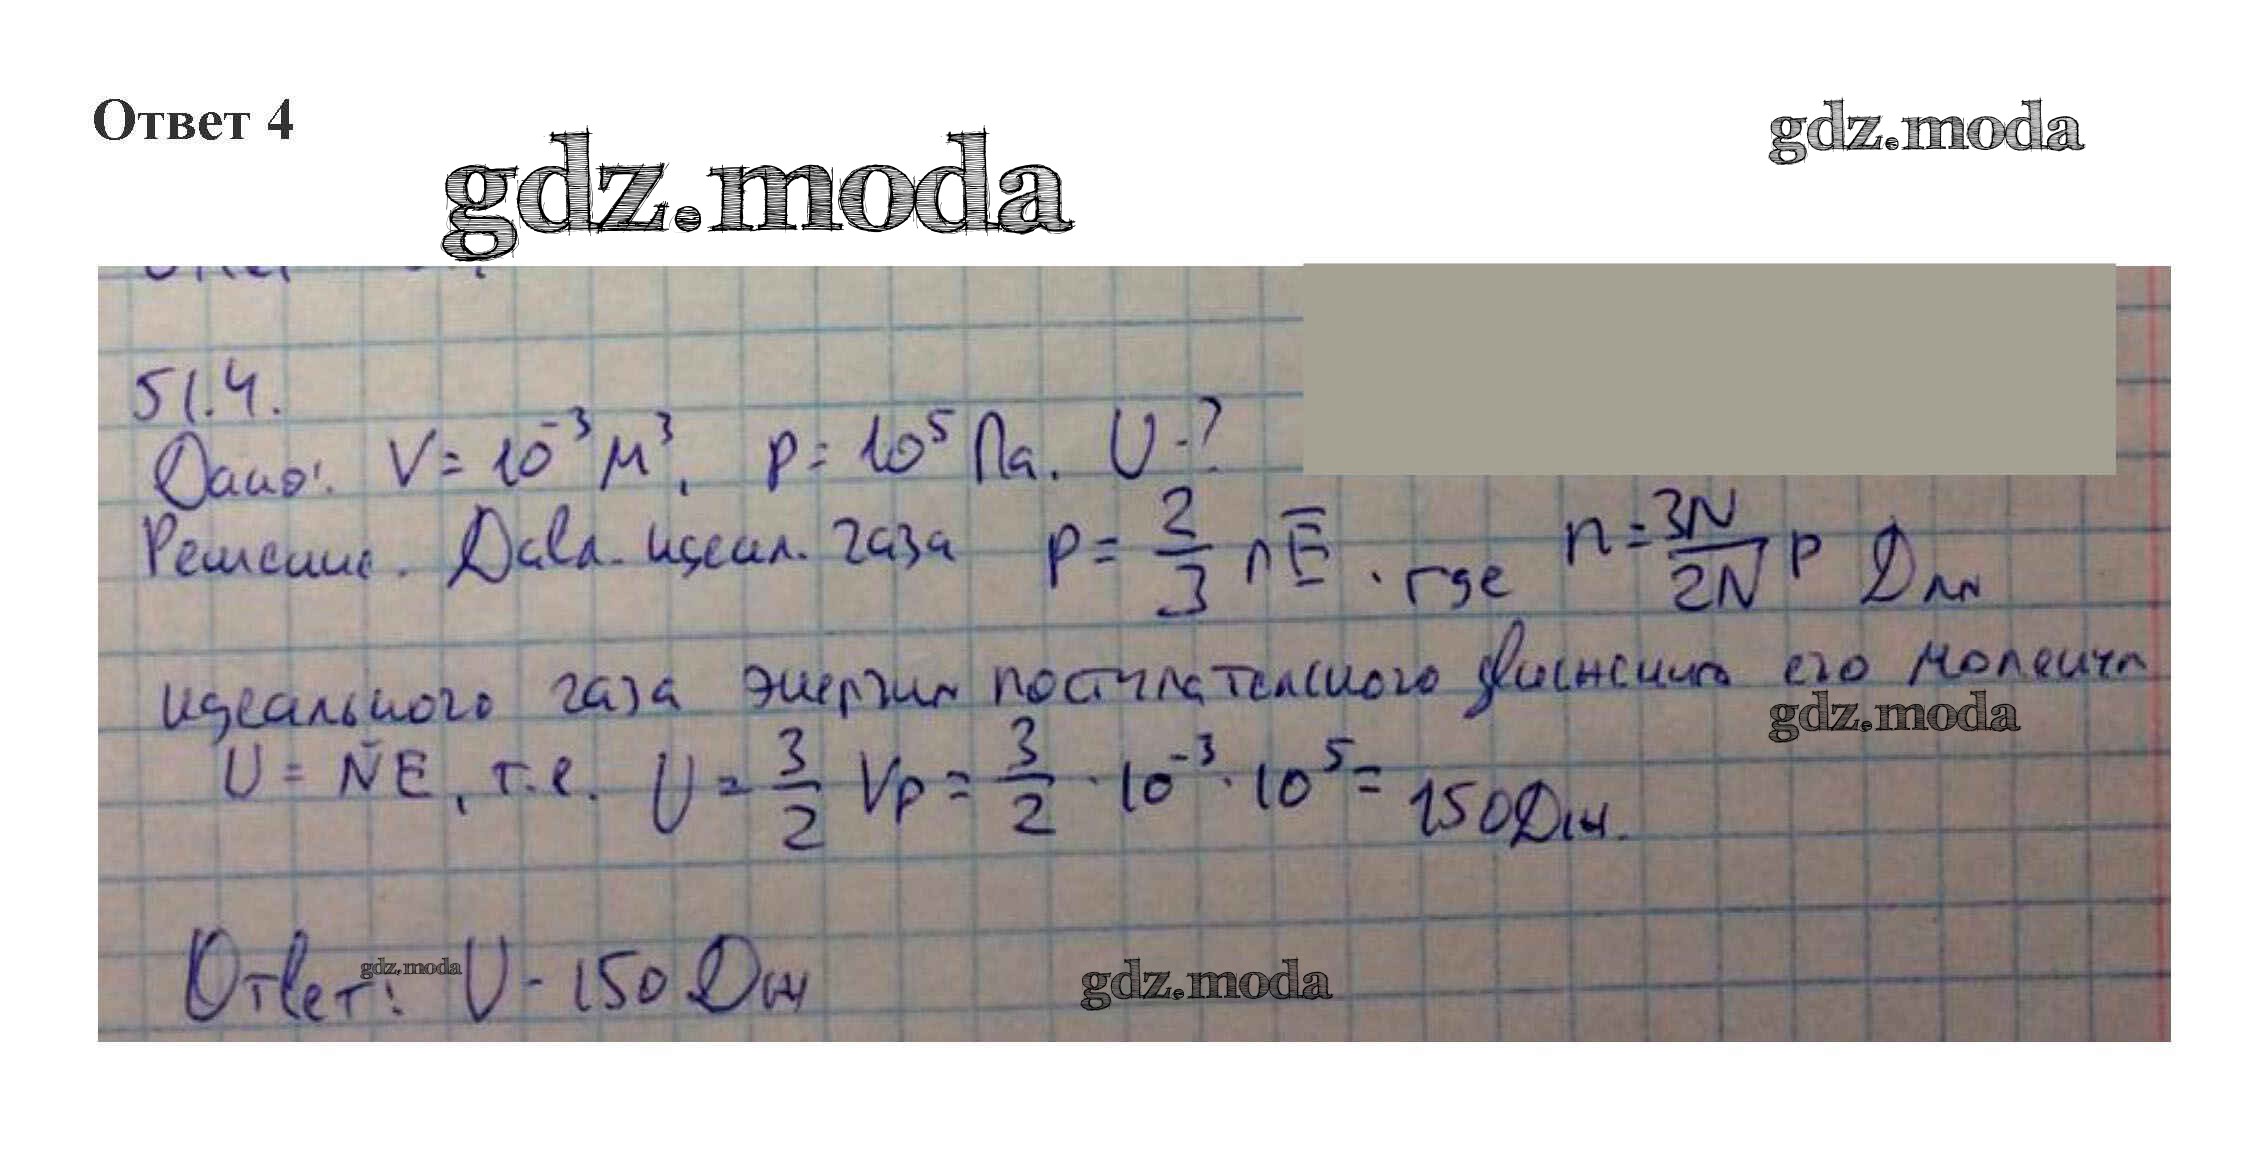 Ответ 4
gdz.moda
gdz.moda
51.4.
Дано: V = 10⁻³ м³, p = 10⁵ Па. U - ?
Решение. идеал. газа p = 2/3 n E̅. где n = 3N/2N p Для
идеального газа энергия поступательного движения его молекул
gdz.moda
U = N̄E, т.е. U = 3/2 Vp = 3/2 · 10⁻³ · 10⁵ = 150 Дж.
Ответ: U - 150 Дж
gdz.moda
gdz.moda